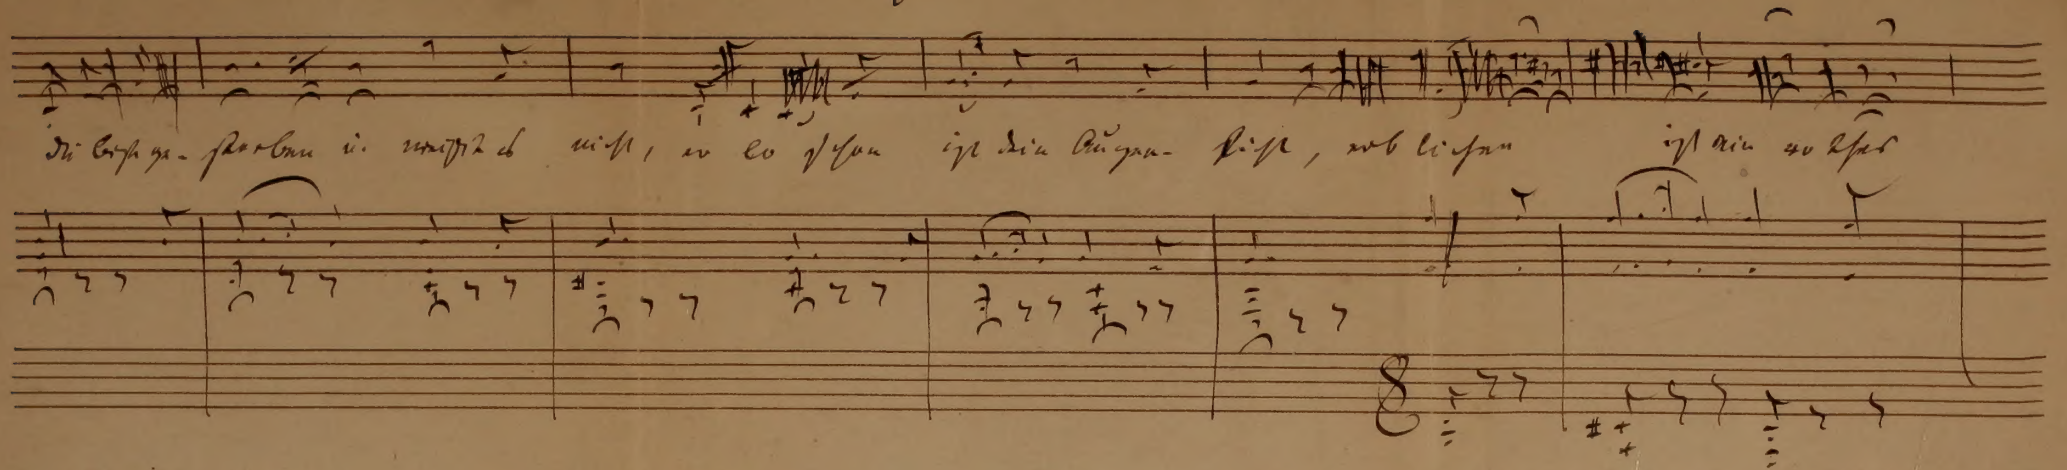 du bist ge- storben u. weißt es nicht, er lo schen ist dein Augen- licht, erb lichen ist dein rothes